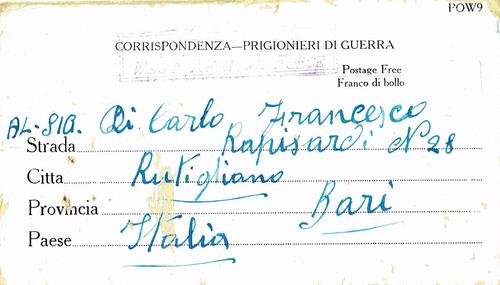 POW9
CORRISPONDENZA—PRIGIONIERI DI GUERRA
Postage Free
Franco di bollo
AL-SIG. Di Carlo Francesco
Strada Rapisardi N° 28
Città Rutigliano
Provincia Bari
Paese Italia